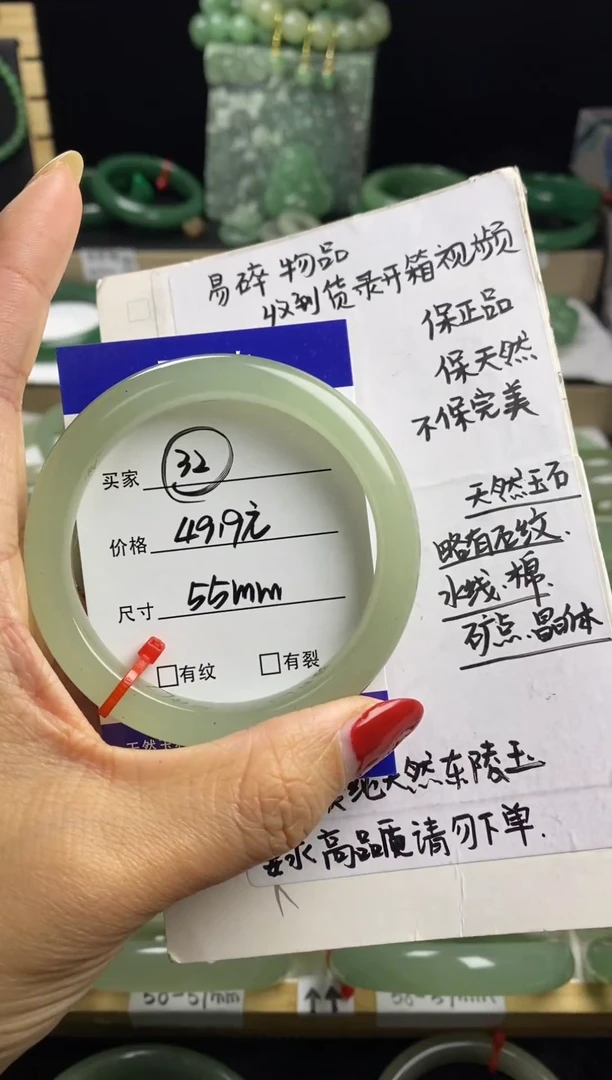 易碎物品
收到货录开箱视频
保正品
保天然
不保完美
买家 32
价格 49.9元
尺寸 55mm
□有纹 □有裂
天然玉石
略有石纹.
水线.棉.
矿点.晶体
天然东陵玉.
要求高品质请勿下单.
50-51mm